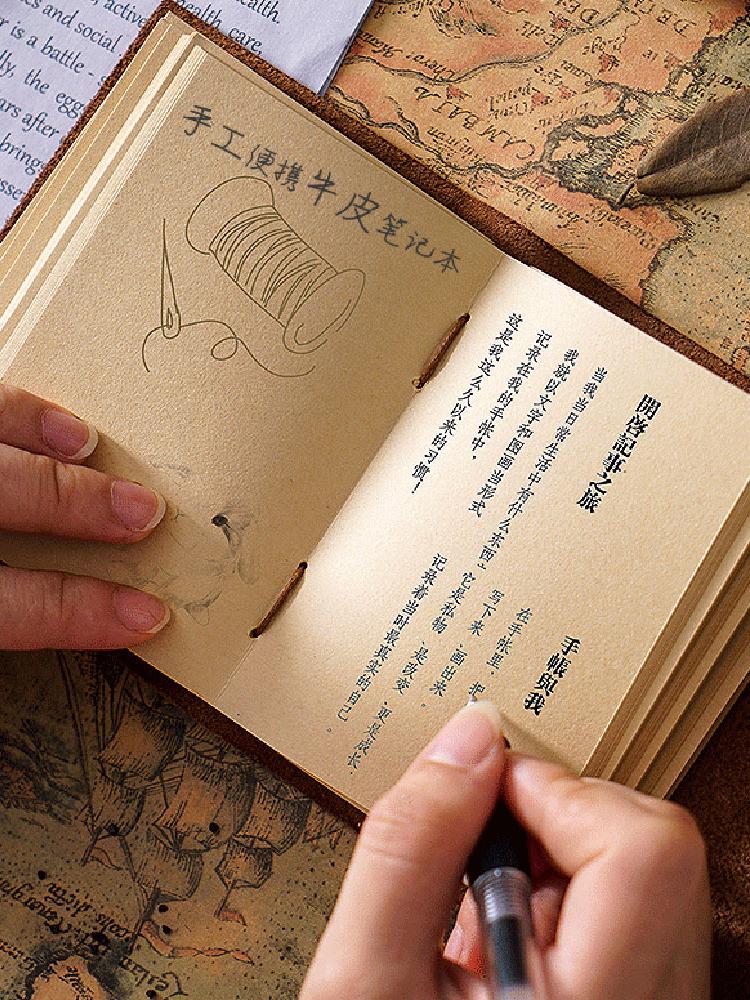 手工便携牛皮笔记本
開啓記事之旅
当我当日常生活中有什么东西
我就以文字和图画当形式
记录在我的手帐中，
这是我这么久以来的习惯！
手帳與我
在手帐里，把
写下来，画出来。
它是私物，是改变，更是成长，
记录着当时最真实的自己。
CAMBAIA
health.
, active
cs and social
health care.
r is a battle -
lly, the egg
ars after
brings